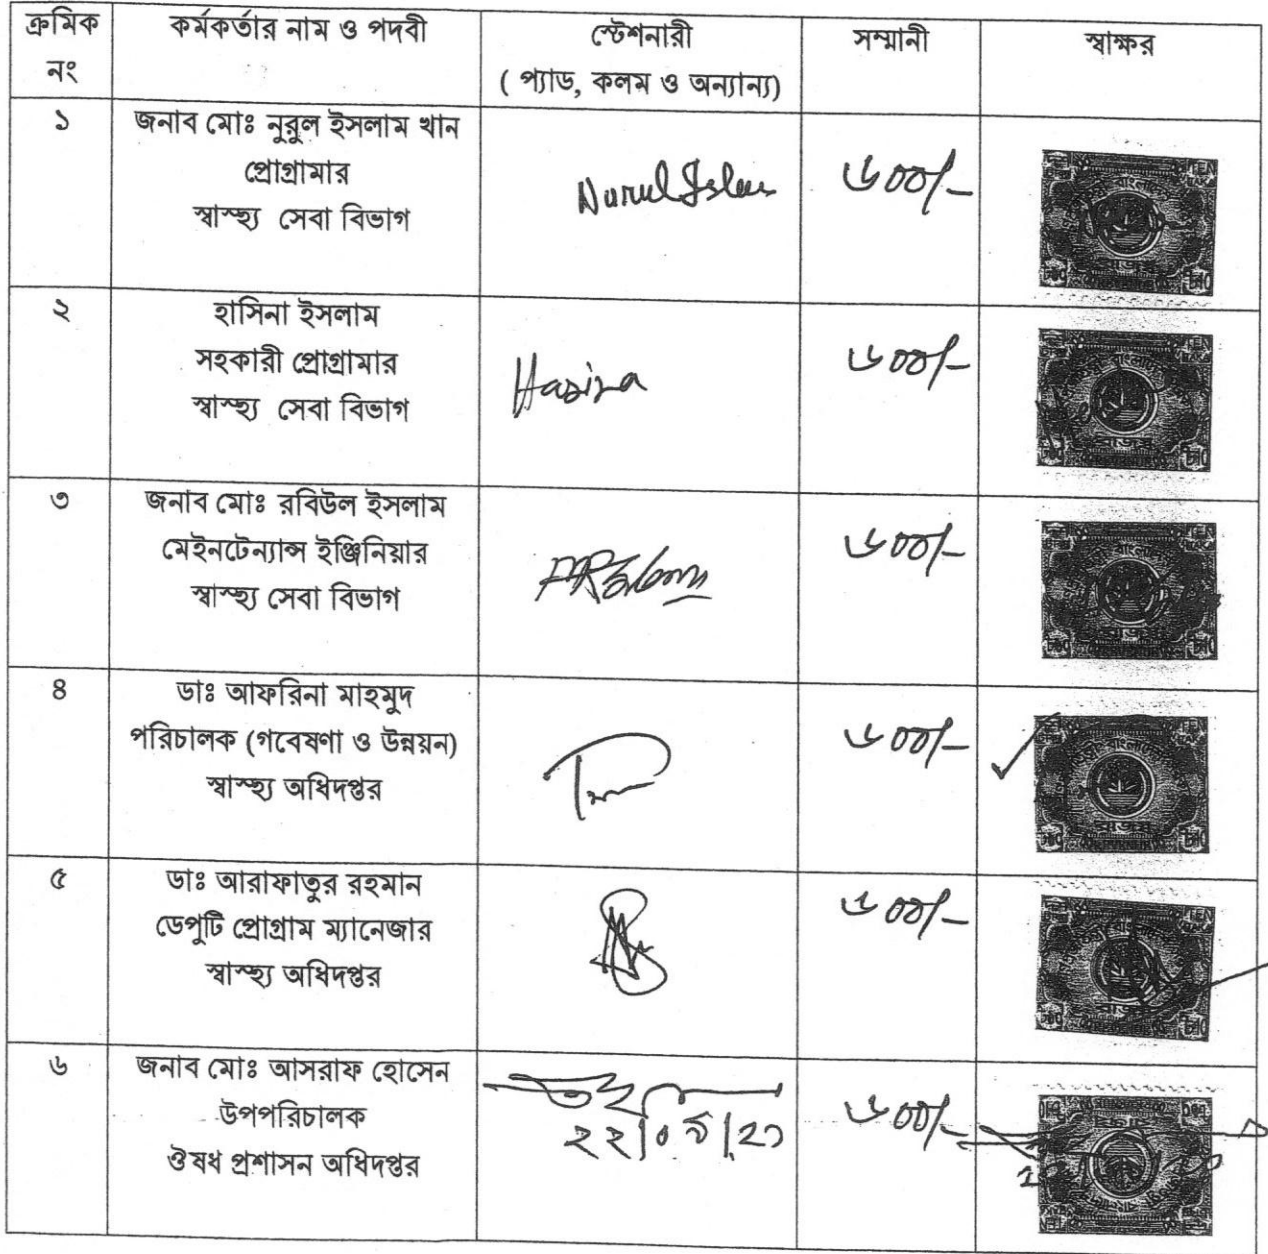 ক্রমিক নং
কর্মকর্তার নাম ও পদবী
স্টেশনারী
( প্যাড, কলম ও অন্যান্য)
সম্মানী
স্বাক্ষর
১
জনাব মোঃ নুরুল ইসলাম খান
প্রোগ্রামার
স্বাস্হ্য সেবা বিভাগ
Nurul Islam
৬০০/-
২
হাসিনা ইসলাম
সহকারী প্রোগ্রামার
স্বাস্হ্য সেবা বিভাগ
Hasina
৬০০/-
৩
জনাব মোঃ রবিউল ইসলাম
মেইনটেন্যান্স ইঞ্জিনিয়ার
স্বাস্হ্য সেবা বিভাগ
৬০০/-
৪
ডাঃ আফরিনা মাহমুদ
পরিচালক (গবেষণা ও উন্নয়ন)
স্বাস্হ্য অধিদপ্তর
৬০০/-
৫
ডাঃ আরাফাতুর রহমান
ডেপুটি প্রোগ্রাম ম্যানেজার
স্বাস্হ্য অধিদপ্তর
৬০০/-
৬
জনাব মোঃ আসরাফ হোসেন
উপপরিচালক
ঔষধ প্রশাসন অধিদপ্তর
২২/০৯/২১
৬০০/-